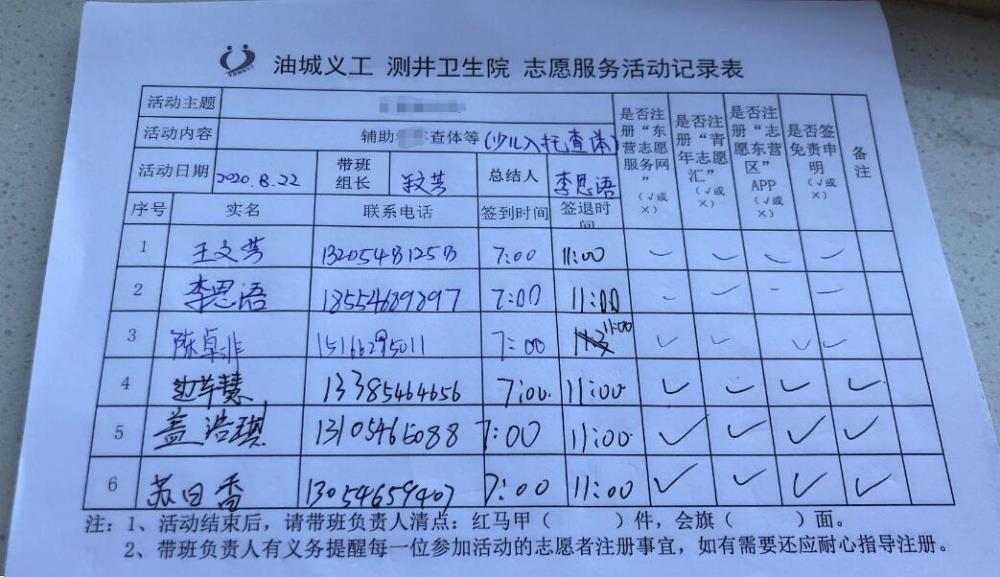 油城义工 测井卫生院 志愿服务活动记录表
活动主题
活动内容 辅助 查体等(少儿入托查体)
活动日期 2020.8.22 带班组长 总结人 李思语
是否注册“东营志愿服务网”(√或×) 是否注册“青年志愿汇”(√或×) 是否注册“志愿东营区”APP(√或×) 是否签免责申明(√或×) 备注
序号 实名 联系电话 签到时间 签退时间
1 王文芳 7:00 11:00 ✓ ✓ ✓ ✓
2 李思语 18554689897 7:00 11:00 ✓ ✓ ✓ ✓
3 陈卓非 7:00 11:00 ✓ ✓ ✓ ✓
4 13385464656 7:00 11:00 ✓ ✓ ✓ ✓
5 盖浩琪 13105465088 7:00 11:00 ✓ ✓ ✓ ✓
6 苏日香 13054659407 7:00 11:00 ✓ ✓ ✓ ✓
注:1、活动结束后,请带班负责人清点:红马甲( )件,会旗( )面。
2、带班负责人有义务提醒每一位参加活动的志愿者注册事宜,如有需要还应耐心指导注册。